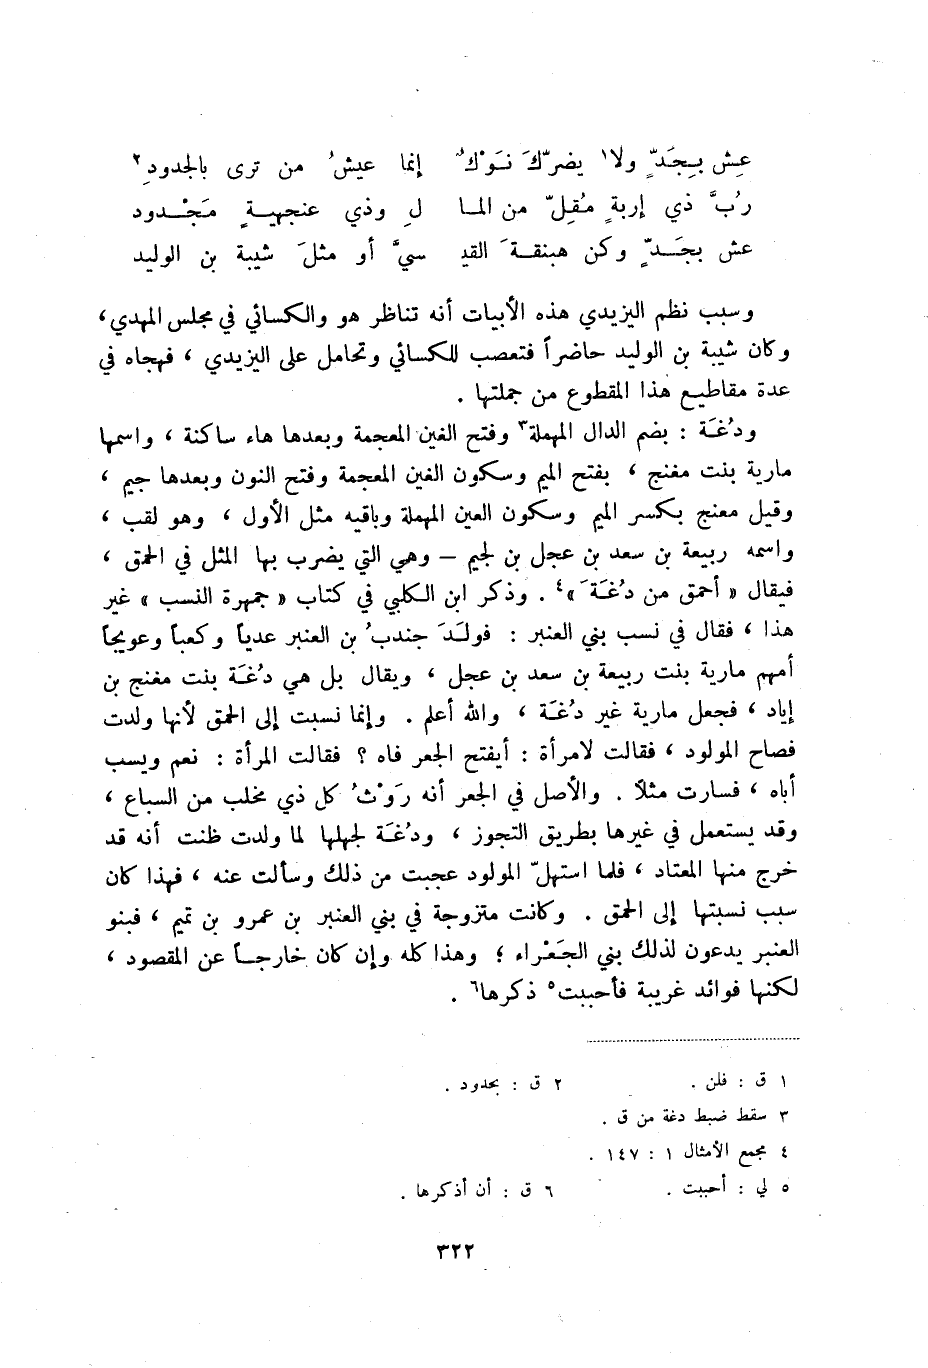 عِش بِجَدٍّ ولا١ يضرّكَ نَوْكٌ إنما عيشُ من ترى بالجدودِ٢
رُبَّ ذي إربةٍ مُقِلّ من الما لِ وذي عنجهيةٍ مَجْدود
عش بجَدٍّ وكن هبنقةَ القيـ سيَّ أو مثلَ شيبة بن الوليد
وسبب نظم اليزيدي هذه الأبيات أنه تناظر هو والكسائي في مجلس المهدي،
وكان شيبة بن الوليد حاضراً فتعصب للكسائي وتحامل على اليزيدي ، فهجاه في
عدة مقاطيع هذا المقطوع من جملتها .
ودُغَة : بضم الدال المهملة٣ وفتح الغين المعجمة وبعدها هاء ساكنة ، واسمها
مارية بنت مغنج ، بفتح الميم وسكون الغين المعجمة وفتح النون وبعدها جيم ،
وقيل معنج بكسر الميم وسكون العين المهملة وباقيه مثل الأول ، وهو لقب ،
واسمه ربيعة بن سعد بن عجل بن لجيم – وهي التي يضرب بها المثل في الحمق ،
فيقال « أحمق من دُغَةَ »٤ . وذكر ابن الكلبي في كتاب « جمهرة النسب » غير
هذا ، فقال في نسب بني العنبر : فولَدَ جندبُ بن العنبر عدياً وكعباً وعويجاً
أمهم مارية بنت ربيعة بن سعد بن عجل ، ويقال بل هي دُغَة بنت مغنج بن
إياد ، فجعل مارية غير دُغَة ، والله أعلم . وإنما نسبت إلى الحمق لأنها ولدت
فصاح المولود ، فقالت لامرأة : أيفتح الجعر فاه ؟ فقالت المرأة : نعم ويسب
أباه ، فسارت مثلاً . والأصل في الجعر أنه رَوْثُ كل ذي مخلب من السباع ،
وقد يستعمل في غيرها بطريق التجوز ، ودُغَة لجهلها لما ولدت ظنت أنه قد
خرج منها المعتاد ، فلما استهلّ المولود عجبت من ذلك وسألت عنه ، فهذا كان
سبب نسبتها إلى الحمق . وكانت متزوجة في بني العنبر بن عمرو بن تميم ، فبنو
العنبر يدعون لذلك بني الجَعْراء ؛ وهذا كله وإن كان خارجاً عن المقصود ،
لكنها فوائد غريبة فأحببت٥ ذكرها٦ .
١ ق : فلن . ٢ ق : بجدود .
٣ سقط ضبط دغة من ق .
٤ مجمع الأمثال ١ : ١٤٧ .
٥ لي : أحببت . ٦ ق : أن أذكرها .
٣٢٢